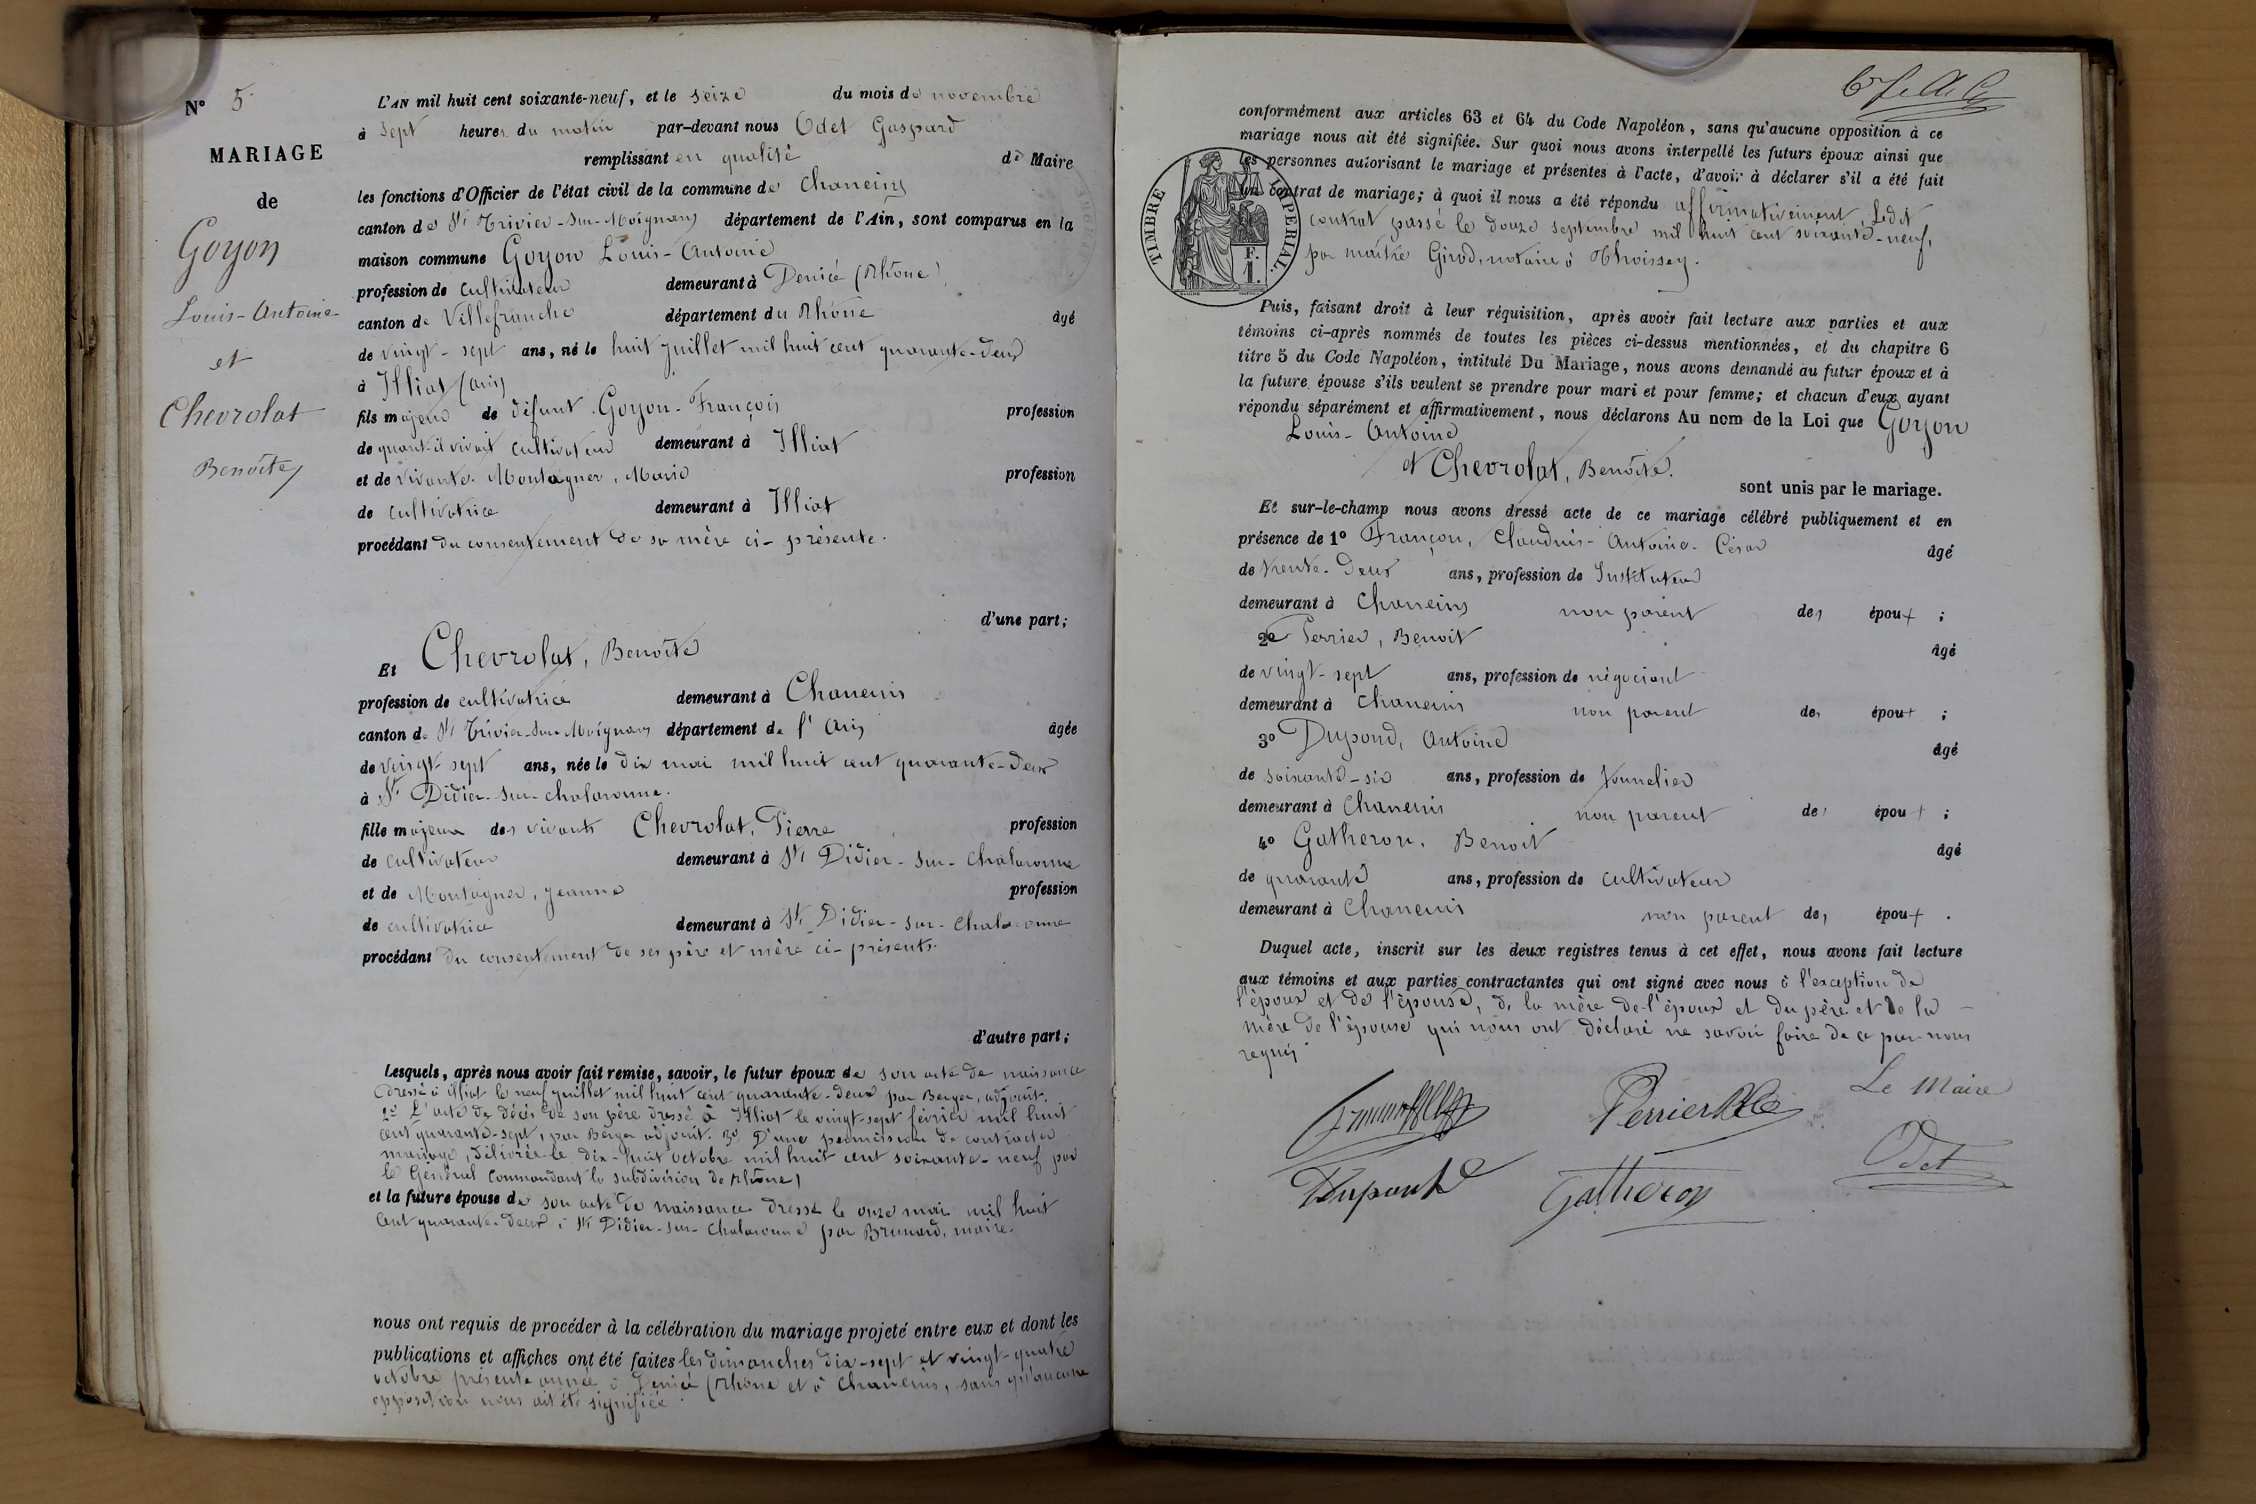 N° 5
MARIAGE
de
Goyon
Louis-Antoine
et
Chevrolat
Benoîte
L'AN mil huit cent soixante-neuf, et le seize du mois de novembre
à sept heures du matin par-devant nous Odet Gaspard
remplissant en qualité de Maire
les fonctions d'Officier de l'état civil de la commune de Chaneins
canton de St Trivier-sur-Moignans département de l'Ain, sont comparus en la
maison commune Goyon Louis-Antoine
profession de cultivateur demeurant à Denicé (Rhône)
canton de Villefranche département du Rhône âgé
de vingt-sept ans, né le huit juillet mil huit cent quarante-deux
à Illiat (ain)
fils majeur de défunt Goyon-François profession
de quant-il vivait cultivateur demeurant à Illiat
et de vivante Montagner, Marie profession
de cultivatrice demeurant à Illiat
procédant du consentement de sa mère ci-présente.
d'une part;
Et Chevrolat, Benoîte
profession de cultivatrice demeurant à Chaneins
canton de St Trivier-sur-Moignans département de l'Ain âgée
de vingt-sept ans, née le dix mai mil huit cent quarante-deux
à St Didier-sur-chalaronne.
fille majeure des vivants Chevrolat, Pierre profession
de cultivateur demeurant à St Didier-sur-Chalaronne
et de Montagner, Jeanne profession
de cultivatrice demeurant à St Didier-sur-chalaronne
procédant du consentement de ses père et mère ci-présents.
d'autre part;
Lesquels, après nous avoir fait remise, savoir, le futur époux de son acte de naissance
dressé à illiat le neuf juillet mil huit cent quarante-deux par Berger, adjoint.
2° L'acte de décès de son père dressé à Illiat le vingt-sept février mil huit
cent quarante-sept, par Berger adjoint. 3° D'une permission de contracter
mariage, délivrée le dix-huit octobre mil huit cent soixante-neuf par
le Général Commandant la subdivision du Rhône,
et la future épouse de son acte de naissance dressé le onze mai mil huit
cent quarante-deux à St Didier-sur-Chalaronne par Brunard, maire.
nous ont requis de procéder à la célébration du mariage projeté entre eux et dont les
publications et affiches ont été faites les dimanches dix-sept et vingt-quatre
octobre présente année à Denicé (Rhône et à Chaneins, sans qu'aucune
opposition nous ait été signifiée.
conformément aux articles 63 et 64 du Code Napoléon, sans qu'aucune opposition à ce
mariage nous ait été signifiée. Sur quoi nous avons interpellé les futurs époux ainsi que
les personnes autorisant le mariage et présentes à l'acte, d'avoir à déclarer s'il a été fait
un contrat de mariage; à quoi il nous a été répondu affirmativement, Ledit
contrat passé le douze septembre mil huit cent soixante-neuf,
par maître Girod, notaire à Thoissey.
TIMBRE IMPERIAL.
F.
1.
Puis, faisant droit à leur réquisition, après avoir fait lecture aux parties et aux
témoins ci-après nommés de toutes les pièces ci-dessus mentionnées, et du chapitre 6
titre 5 du Code Napoléon, intitulé Du Mariage, nous avons demandé au futur époux et à
la future épouse s'ils veulent se prendre pour mari et pour femme; et chacun d'eux ayant
répondu séparément et affirmativement, nous déclarons Au nom de la Loi que Goyon
Louis-Antoine
et Chevrolat, Benoîte.
sont unis par le mariage.
Et sur-le-champ nous avons dressé acte de ce mariage célébré publiquement et en
présence de 1° Françon, Claudius-Antoine-César âgé
de trente-deux ans, profession de Instituteur
demeurant à Chaneins non parent des époux ;
2° Perrier, Benoit âgé
de vingt-sept ans, profession de négociant
demeurant à Chaneins non parent des époux ;
3° Dupond, Antoine âgé
de soixante-six ans, profession de tonnelier
demeurant à Chaneins non parent des époux ;
4° Gatheron, Benoit âgé
de quarante ans, profession de cultivateur
demeurant à Chaneins non parent des époux .
Duquel acte, inscrit sur les deux registres tenus à cet effet, nous avons fait lecture
aux témoins et aux parties contractantes qui ont signé avec nous à l'exception de
l'époux et de l'épouse, de la mère de l'époux et du père et de la
mère de l'épouse qui nous ont déclaré ne savoir faire de ce par nous
requis
Le Maire
Perrier
Odet
Dupont
Gatheron